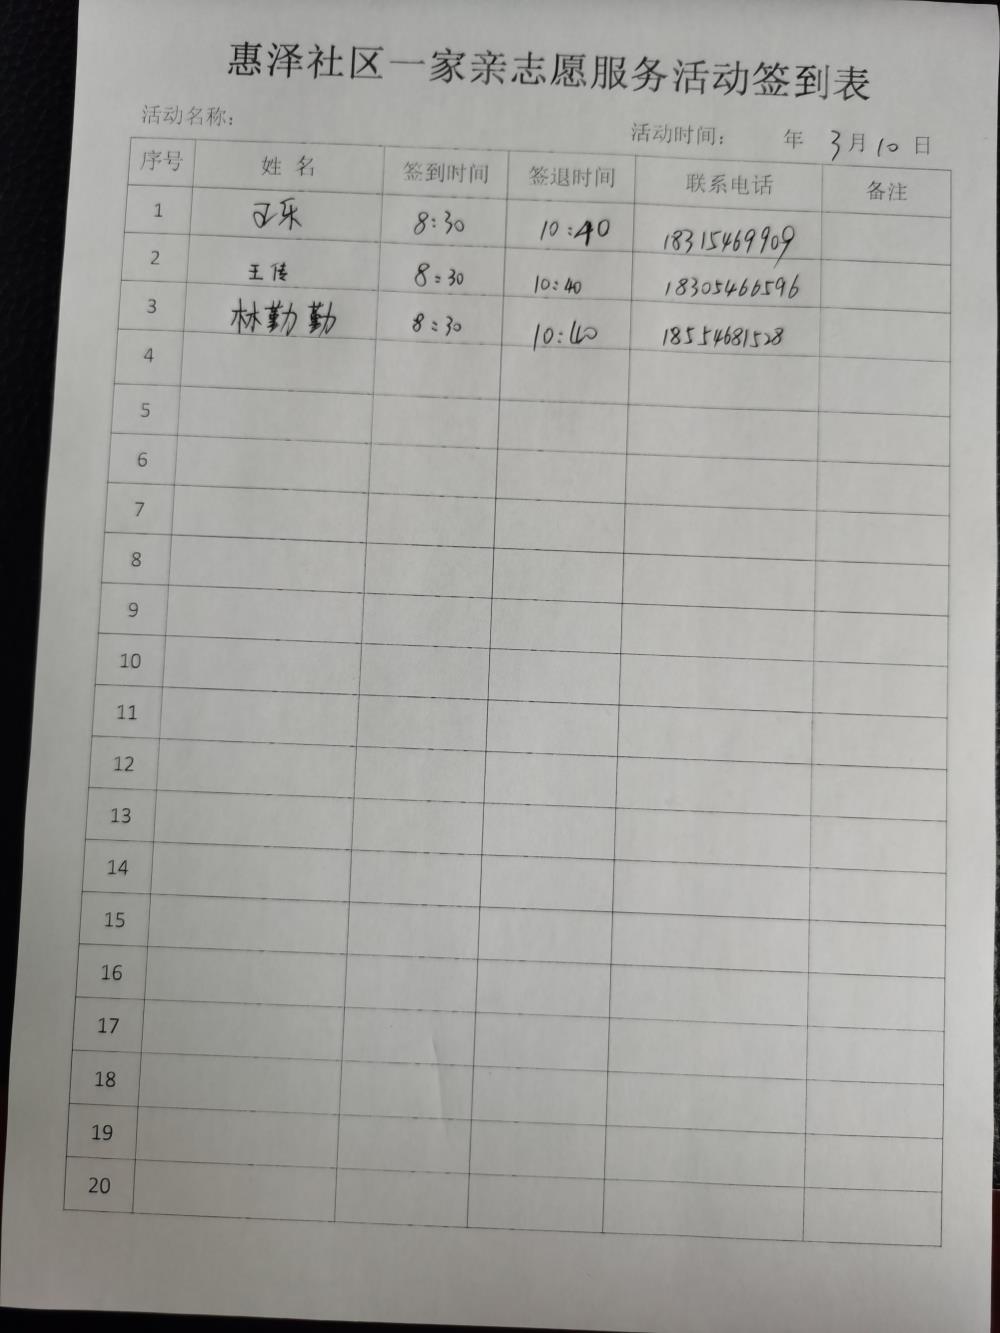 惠泽社区一家亲志愿服务活动签到表
活动名称：
活动时间： 年 3月10日
序号 姓 名 签到时间 签退时间 联系电话 备注
1 王乐 8:30 10:40 18315469909
2 王传 8:30 10:40 18305466596
3 林勤勤 8:30 10:40 18554681528
4
5
6
7
8
9
10
11
12
13
14
15
16
17
18
19
20